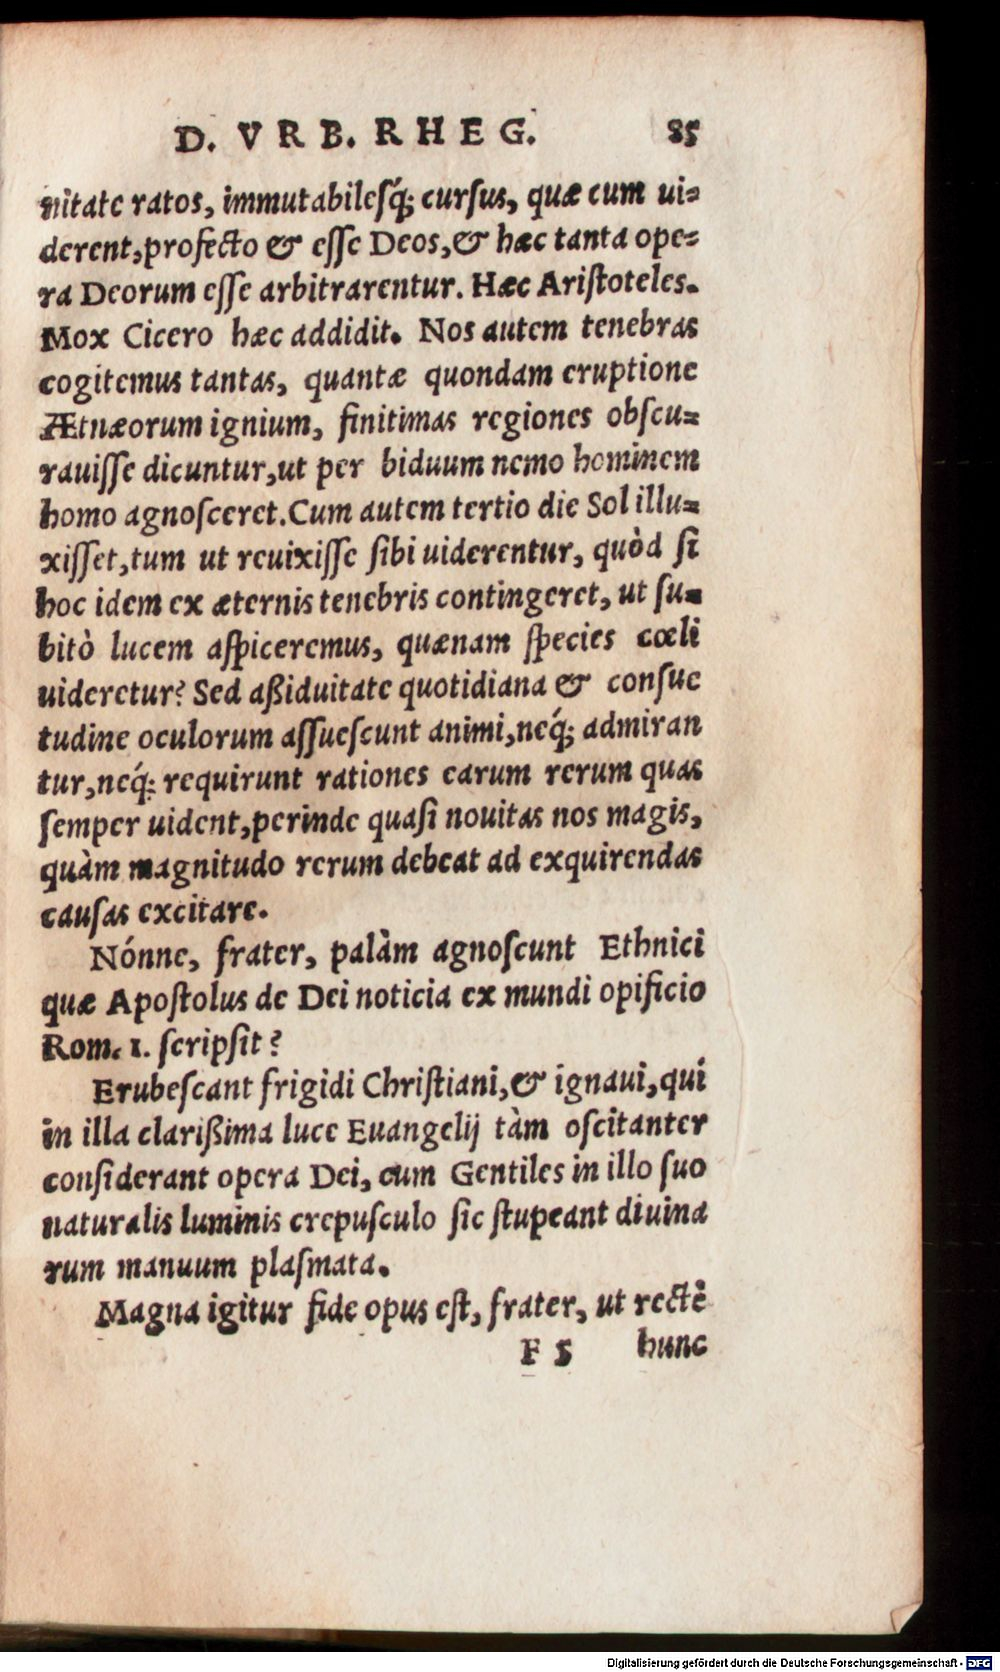 D. VRB. RHEG. 85
nitate ratos, immutabilesq́; cursus, quæ cum ui⸗
derent, profecto & esse Deos, & hæc tanta ope⸗
ra Deorum esse arbitrarentur. Hæc Aristoteles.
Mox Cicero hæc addidit. Nos autem tenebras
cogitemus tantas, quantæ quondam eruptione
Ætnæorum ignium, finitimas regiones obscu⸗
rauisse dicuntur, ut per biduum nemo hominem
homo agnosceret. Cum autem tertio die Sol illu⸗
xisset, tum ut reuixisse sibi uiderentur, quòd si
hoc idem ex æternis tenebris contingeret, ut su⸗
bitò lucem aspiceremus, quænam species cœli
uideretur? Sed aßiduitate quotidiana & consue
tudine oculorum assuescunt animi, neq́; admiran
tur, neq́; requirunt rationes earum rerum quas
semper uident, perinde quasi nouitas nos magis,
quàm magnitudo rerum debeat ad exquirendas
causas excitare.
Nónne, frater, palàm agnoscunt Ethnici
quæ Apostolus de Dei noticia ex mundi opificio
Rom. 1. scripsit?
Erubescant frigidi Christiani, & ignaui, qui
in illa clarißima luce Euangelij tàm oscitanter
considerant opera Dei, cum Gentiles in illo suo
naturalis luminis crepusculo sic stupeant diuina
rum manuum plasmata.
Magna igitur fide opus est, frater, ut rectè
F 5 hunc
Digitalisierung gefördert durch die Deutsche Forschungsgemeinschaft - DFG